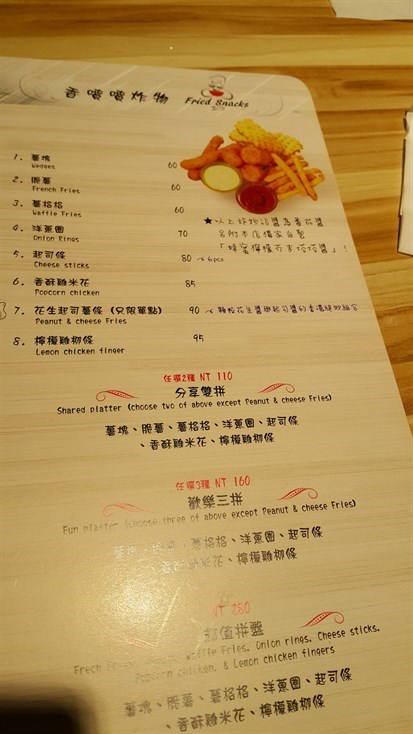 香噴噴炸物 Fried Snacks
1. 薯塊 60
Wedges
2. 脆薯 60
French Fries
3. 薯格格 60
Waffle Fries
4. 洋蔥圈 70
Onion Rings
5. 起司條 80 6pcs
Cheese sticks
6. 香酥雞米花 85
Popcorn chicken
7. 花生起司薯條 (只限單點) 90
Peanut & cheese Fries
8. 檸檬雞柳條 95
Lemon chicken finger
★以上炸物沾醬為番茄醬
任選2種 NT 110
分享雙拼
Shared platter (choose two of above except Peanut & cheese Fries)
薯塊、脆薯、薯格格、洋蔥圈、起司條
、香酥雞米花、檸檬雞柳條
任選3種 NT 160
歡樂三拼
Fun platter (choose three of above except Peanut & cheese Fries)
薯塊、脆薯、薯格格、洋蔥圈、起司條
、香酥雞米花、檸檬雞柳條
NT 280
超值拼盤
Waffle Fries, Onion rings, Cheese sticks,
Popcorn chicken, & Lemon chicken fingers
薯塊、脆薯、薯格格、洋蔥圈、起司條
、香酥雞米花、檸檬雞柳條